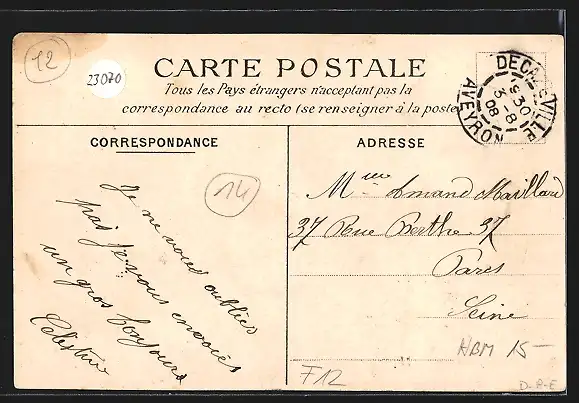 12
23070
CARTE POSTALE
Tous les Pays étrangers n'acceptant pas la
correspondance au recto (se renseigner à la poste
DECAZEVILLE
19 30
3 - 8
08
AVEYRON
CORRESPONDANCE
14
Je ne vous oublies
pas Je vous envoies
un gros bonjours
Célestine
ADRESSE
Mme Armand Maillard
37 Rue Berthe 37
Paris
Seine
HBM 15-
F12
D-A-E